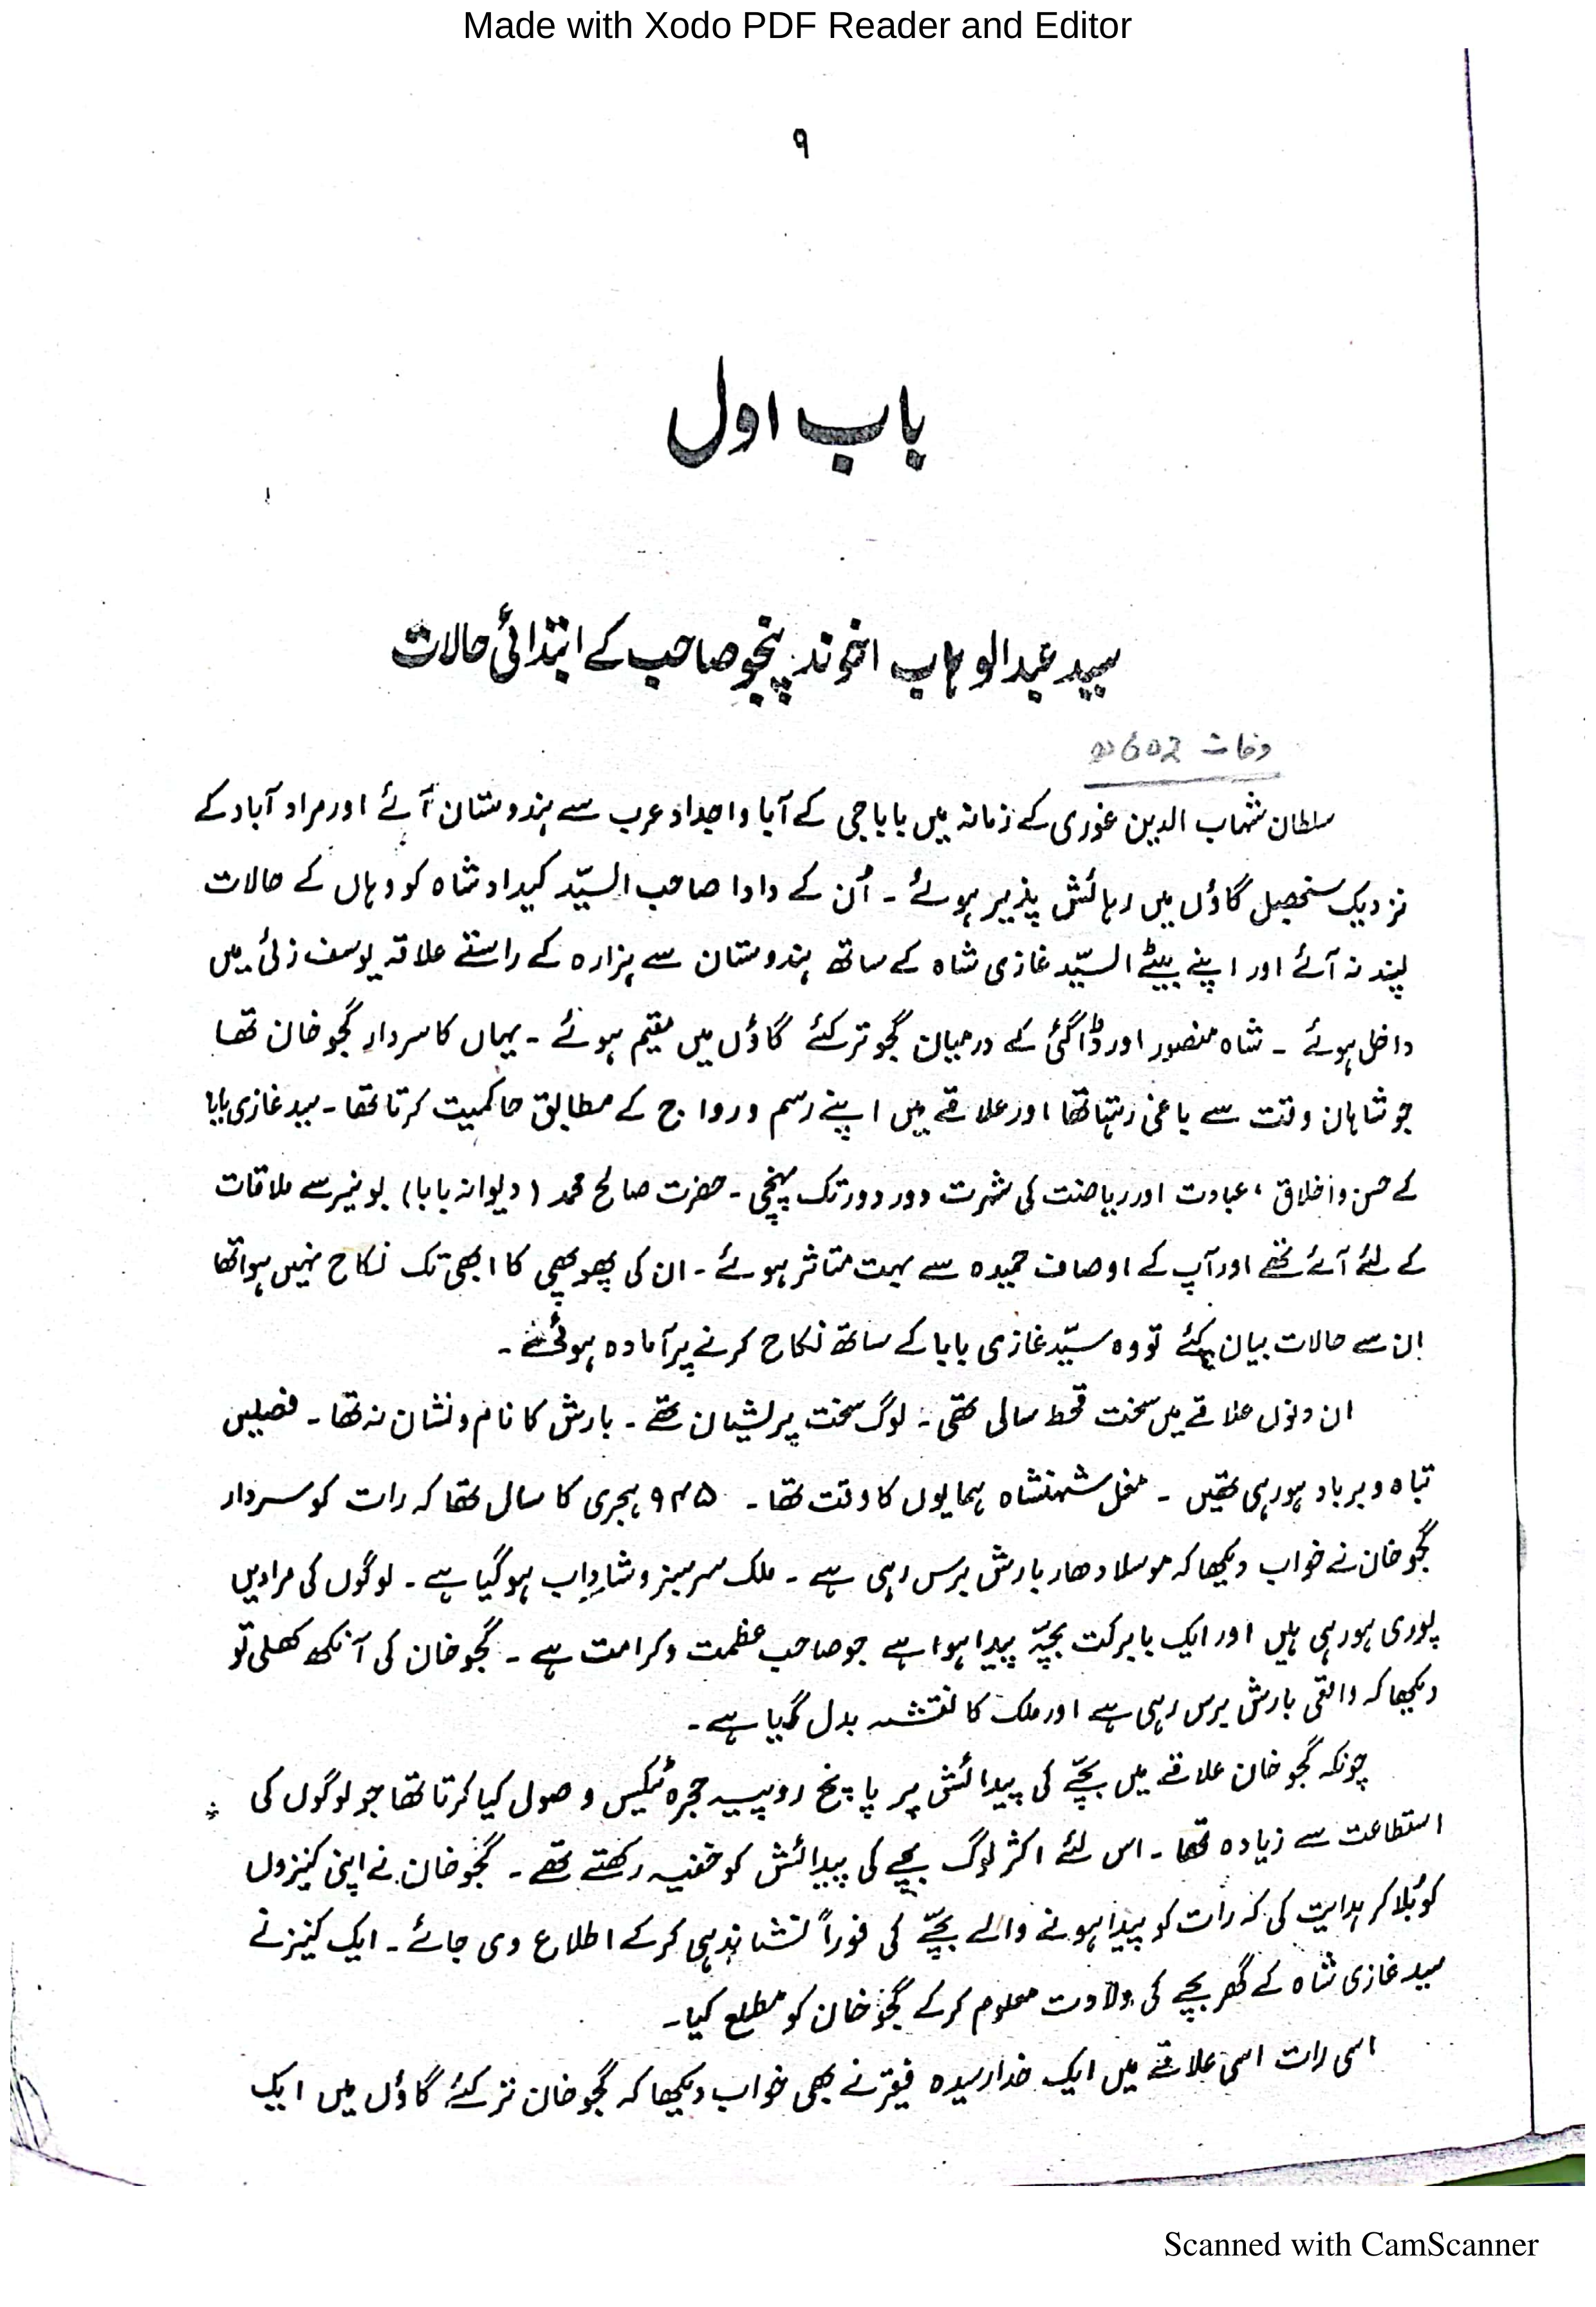 Made with Xodo PDF Reader and Editor
۹
باب اول
سید عبدالوہاب اخوند پنجو صاحب کے ابتدائی حالات
وفات 602ھ
سلطان شہاب الدین غوری کے زمانہ میں باباجی کے آباواجداد عرب سے ہندوستان آئے اور مراد آباد کے
نزدیک سنبھل گاؤں میں رہائش پذیر ہوئے ۔ اُن کے دادا صاحب السیّد کیداد شاہ کو وہاں کے حالات
پسند نہ آئے اور اپنے بیٹے السیّد غازی شاہ کے ساتھ ہندوستان سے ہزارہ کے راستے علاقہ یوسف زئی میں
داخل ہوئے ۔ شاہ منصور اور ڈاگئی کے درمیان گجو ترکئے گاؤں میں مقیم ہوئے ۔ یہاں کا سردار گجو خان تھا
جو شاہان وقت سے باغی رہتا تھا اور علاقے میں اپنے رسم و رواج کے مطابق حاکمیت کرتا تھا ۔ سید غازی بابا
کے حسن و اخلاق ، عبادت اور ریاضت کی شہرت دور دور تک پہنچی ۔ حضرت صالح محمد (دیوانہ بابا) بونیر سے ملاقات
کے لئے آئے تھے اور آپ کے اوصاف حمیدہ سے بہت متاثر ہوئے ۔ ان کی پھوپھی کا ابھی تک نکاح نہیں ہوا تھا
ان سے حالات بیان کئے تو وہ سیّد غازی بابا کے ساتھ نکاح کرنے پر آمادہ ہوئی ۔
ان دنوں علاقے میں سخت قحط سالی تھی ۔ لوگ سخت پریشان تھے ۔ بارش کا نام و نشان نہ تھا ۔ فصلیں
تباہ و برباد ہو رہی تھیں ۔ مغل شہنشاہ ہمایوں کا وقت تھا ۔ ۹۴۵ ہجری کا سال تھا کہ رات کو سردار
گجو خان نے خواب دیکھا کہ موسلا دھار بارش برس رہی ہے ۔ ملک سرسبز و شاداب ہو گیا ہے ۔ لوگوں کی مرادیں
پوری ہو رہی ہیں اور ایک بابرکت بچّہ پیدا ہوا ہے جو صاحب عظمت و کرامت ہے ۔ گجو خان کی آنکھ کھلی تو
دیکھا کہ واقعی بارش برس رہی ہے اور ملک کا نقشہ بدل گیا ہے ۔
چونکہ گجو خان علاقے میں بچّے کی پیدائش پر پانچ روپیہ حجرہ ٹیکس وصول کیا کرتا تھا جو لوگوں کی
استطاعت سے زیادہ تھا ۔ اس لئے اکثر لوگ بچے کی پیدائش کو خفیہ رکھتے تھے ۔ گجو خان نے اپنی کنیزوں
کو بُلا کر ہدایت کی کہ رات کو پیدا ہونے والے بچّے کی فوراً نشاندہی کر کے اطلاع دی جائے ۔ ایک کنیز نے
سید غازی شاہ کے گھر بچے کی ولادت معلوم کر کے گجو خان کو مطلع کیا ۔
اسی رات اسی علاقے میں ایک خدا رسیدہ فیقر نے بھی خواب دیکھا کہ گجو خان ترکئے گاؤں میں ایک
Scanned with CamScanner